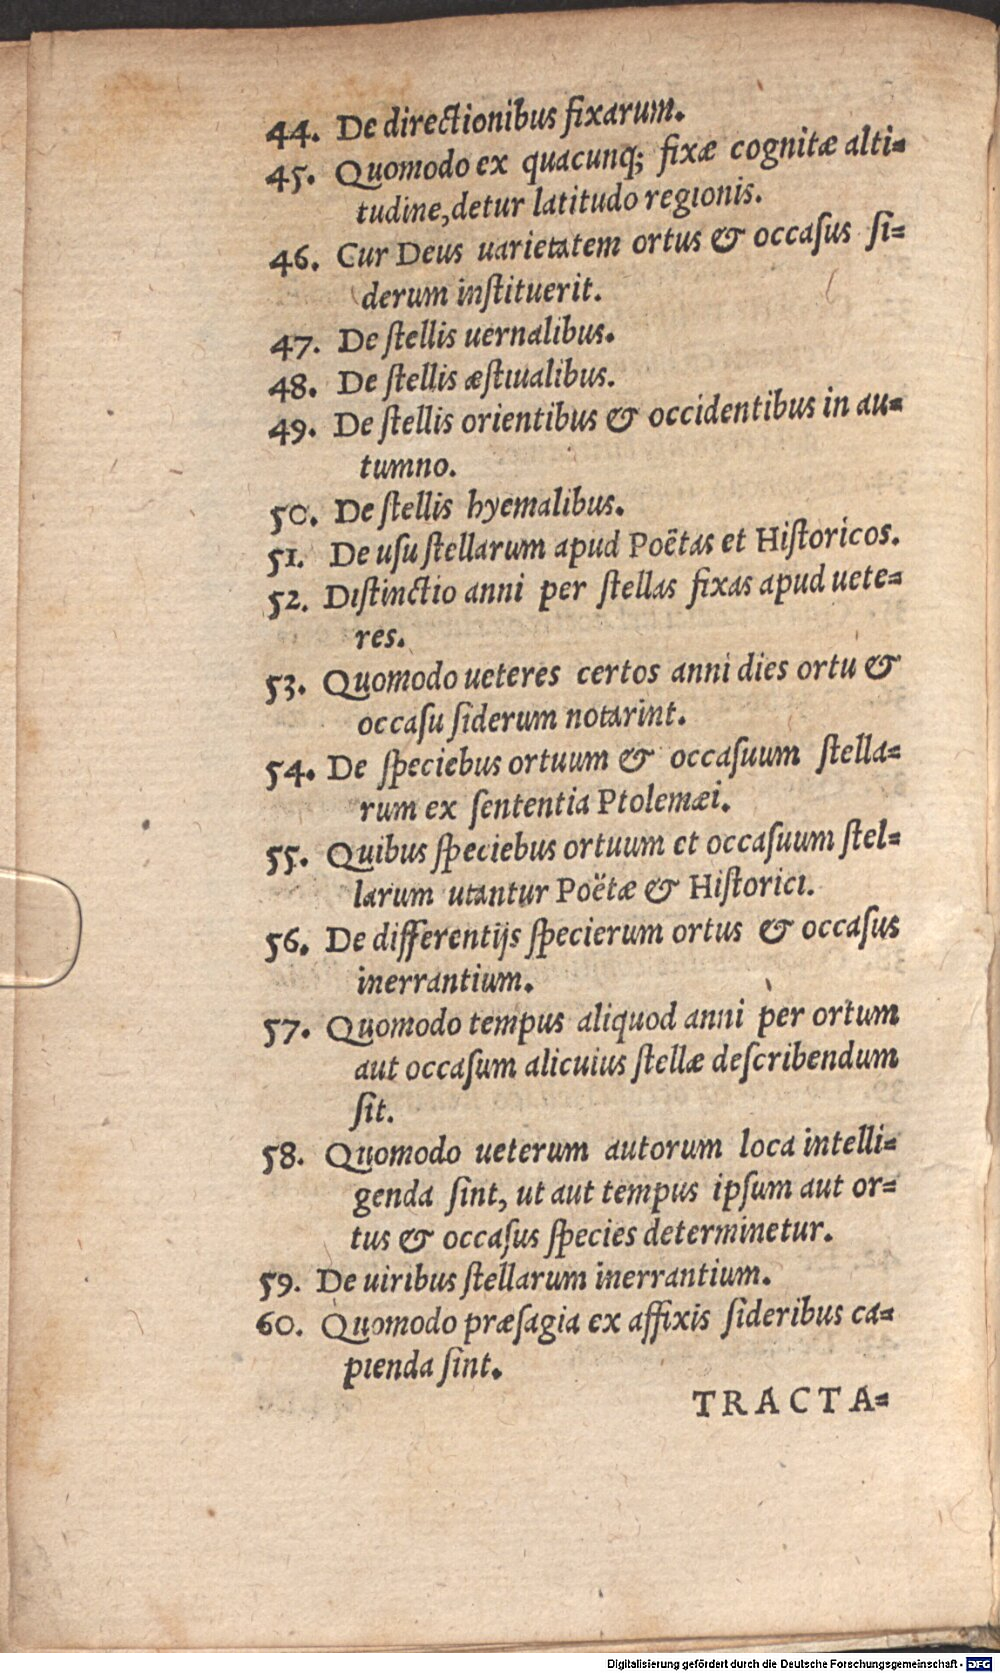 44. De directionibus fixarum.
45. Quomodo ex quacunq; fixæ cognitæ alti=
tudine, detur latitudo regionis.
46. Cur Deus uarietatem ortus & occaſus ſi=
derum inſtituerit.
47. De ſtellis uernalibus.
48. De ſtellis æſtiualibus.
49. De ſtellis orientibus & occidentibus in au=
tumno.
50. De ſtellis hyemalibus.
51. De uſu ſtellarum apud Poëtas et Hiſtoricos.
52. Diſtinctio anni per ſtellas fixas apud uete=
res.
53. Quomodo ueteres certos anni dies ortu &
occaſu ſiderum notarint.
54. De ſpeciebus ortuum & occaſuum ſtella=
rum ex ſententia Ptolemæi.
55. Quibus ſpeciebus ortuum et occaſuum ſtel=
larum utantur Poëtæ & Hiſtorici.
56. De differentijs ſpecierum ortus & occaſus
inerrantium.
57. Quomodo tempus aliquod anni per ortum
aut occaſum alicuius ſtellæ deſcribendum
ſit.
58. Quomodo ueterum autorum loca intelli=
genda ſint, ut aut tempus ipſum aut or=
tus & occaſus ſpecies determinetur.
59. De uiribus ſtellarum inerrantium.
60. Quomodo præſagia ex affixis ſideribus ca=
pienda ſint.
TRACTA=
Digitalisierung gefördert durch die Deutsche Forschungsgemeinschaft - DFG